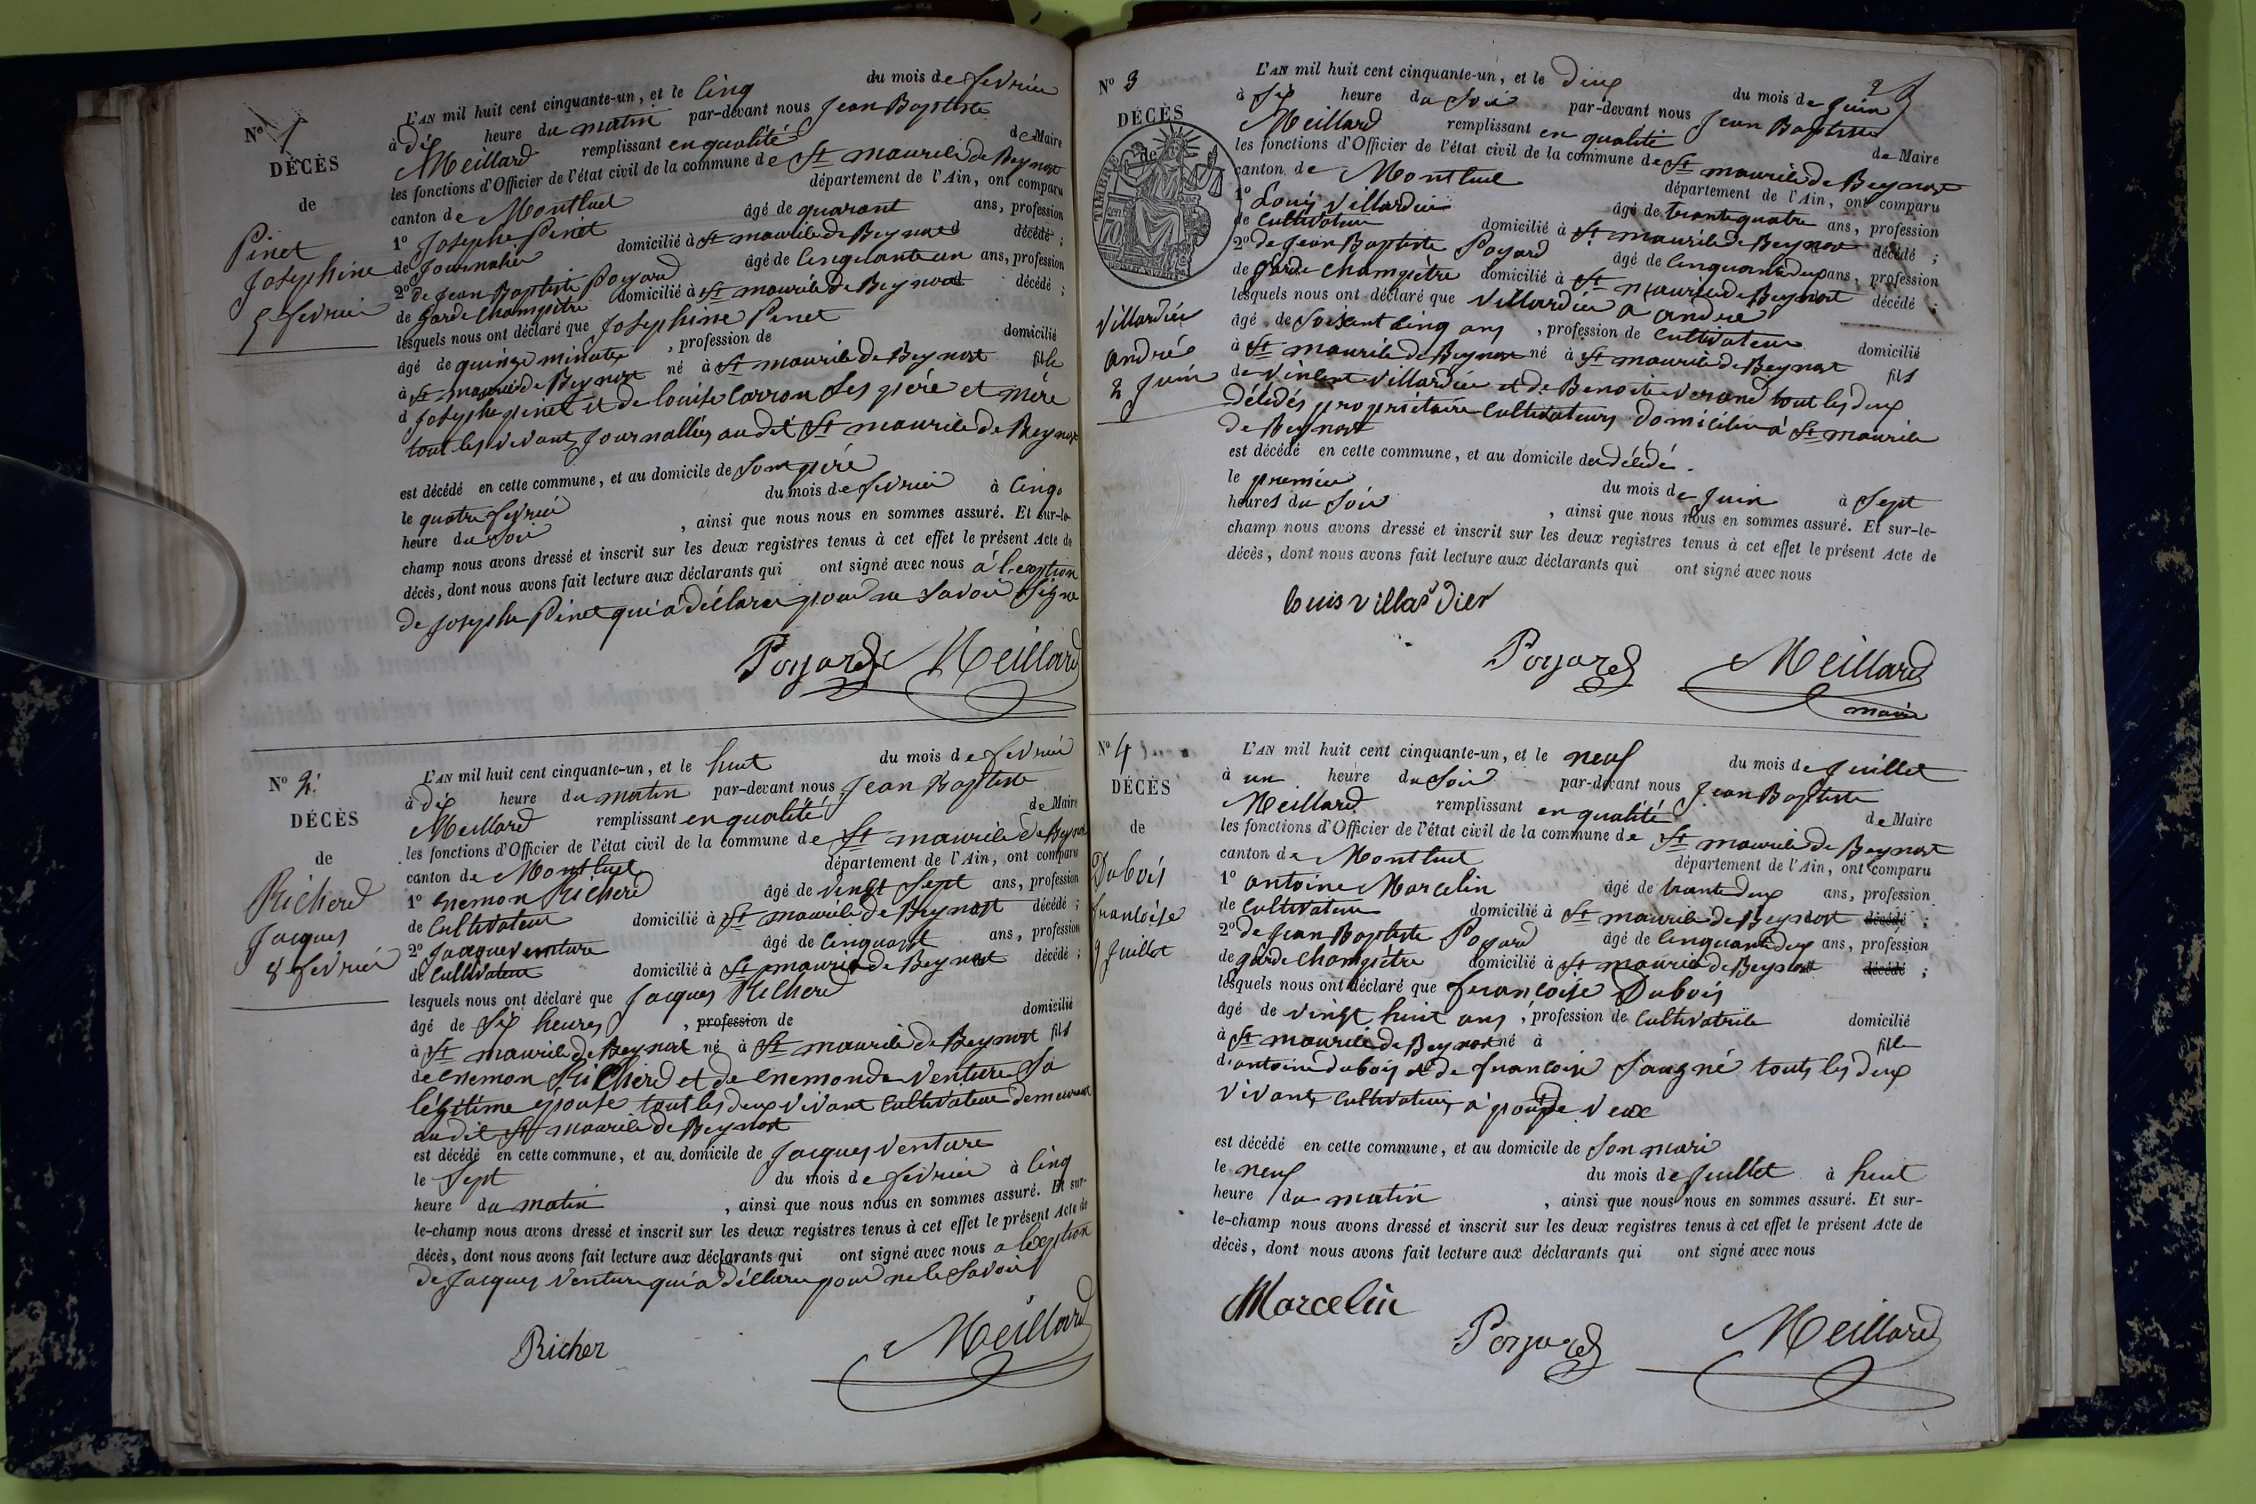 N° 1
DÉCÈS
de
Pinet
Josephine
5 fevrier
L'AN mil huit cent cinquante-un, et le cinq du mois de fevrier
à dix heure du matin par-devant nous Jean Baptiste
Meillard remplissant en qualité de Maire
les fonctions d'Officier de l'état civil de la commune de St maurice de Beynost
canton de Montluel département de l'Ain, ont comparu
1° Josephe Pinet âgé de quarant ans, profession
de Journalier domicilié à St maurice de Beynost décédé ;
2° de Jean Baptiste Poyard âgé de cinquante un ans, profession
de garde champêtre domicilié à St maurice de Beynost décédé ;
lesquels nous ont déclaré que Josephine Pinet
âgé de quinze minutes, profession de domicilié
à St maurice de Beynost né à St maurice de Beynost fille
d Josephe pinet et de louise Carron ses père et mère
tout les vivant Journallier audit St maurice de Beynost
est décédé en cette commune, et au domicile de Son père
le quatre fevrier du mois de fevrier à cinq
heure du Soir, ainsi que nous nous en sommes assuré. Et sur-le-
champ nous avons dressé et inscrit sur les deux registres tenus à cet effet le présent Acte de
décès, dont nous avons fait lecture aux déclarants qui ont signé avec nous à l'exeption
de Josephe Pinet qui a déclarer pour ne Savoir Signe
Poyard Meillard
N° 2
DÉCÈS
de
Richerd
Jacques
8 fevrier
L'AN mil huit cent cinquante-un, et le huit du mois de fevrier
à dix heure du matin par-devant nous Jean Baptiste
Meillard remplissant en qualité de Maire
les fonctions d'Officier de l'état civil de la commune de St maurice de Beynost
canton de Montluel département de l'Ain, ont comparu
1° Enemon Richerd âgé de vingt Sept ans, profession
de Cultivateur domicilié à St maurice de Beynost décédé ;
2° Jacque venture âgé de cinquant ans, profession
de Cultivateur domicilié à St maurice de Beynost décédé ;
lesquels nous ont déclaré que Jacques Richerd
âgé de Six heures, profession de domicilié
à St maurice de Beynost né à St maurice de Beynost fils
de Enemon Richerd et de Enemonde Venture Sa
légitime épouse tout les deux vivant Cultivateur demeurant
audit St maurice de Beynost
est décédé en cette commune, et au domicile de Jacques Venture
le Sept du mois de fevrier à cinq
heure du matin, ainsi que nous nous en sommes assuré. Et sur-
le-champ nous avons dressé et inscrit sur les deux registres tenus à cet effet le présent Acte de
décès, dont nous avons fait lecture aux déclarants qui ont signé avec nous a lexeption
de Jacques Venture qui a déllare pour ne le Savoir
Richer Meillard
2
N° 3
DÉCÈS
de
TIMBRE
70
Villardier
andré
2 Juin
L'AN mil huit cent cinquante-un, et le deux du mois de Juin
à Six heure du Soir par-devant nous Jean Baptiste
Meillard remplissant en qualité de Maire
les fonctions d'Officier de l'état civil de la commune de St maurice de Beynost
canton de Montluel département de l'Ain, ont comparu
1° Louis Villardier âgé de trante quatre ans, profession
de Cultivateur domicilié à St maurice de Beynost décédé ;
2° de Jean Baptiste Poyard âgé de cinquante deux ans, profession
de garde champêtre domicilié à St maurice de Beynost décédé ;
lesquels nous ont déclaré que Villardier andré
âgé de Soixant cinq ans, profession de Cultivateur domicilié
à St maurice de Beynost né à St maurice de Beynost fils
de vincent Villardier et de Benoite Verand tout les deux
Décédés propriétaire Cultivateurs Domicilier à St maurice
de Beynost
est décédé en cette commune, et au domicile du décédé.
le premier du mois de Juin à Sept
heures du Soir, ainsi que nous nous en sommes assuré. Et sur-le-
champ nous avons dressé et inscrit sur les deux registres tenus à cet effet le présent Acte de
décès, dont nous avons fait lecture aux déclarants qui ont signé avec nous
louis villardier
Poyard Meillard
maire
N° 4
DÉCÈS
de
Dubois
francoise
9 Juillet
L'AN mil huit cent cinquante-un, et le neuf du mois de Juillet
à un heure du Soir par-devant nous Jean Baptiste
Meillard remplissant en qualité de Maire
les fonctions d'Officier de l'état civil de la commune de St maurice de Beynost
canton de Montluel département de l'Ain, ont comparu
1° antoine Marcelin âgé de trante deux ans, profession
de Cultivateur domicilié à St maurice de Beynost décédé ;
2° de Jean Baptiste Poyard âgé de cinquante deux ans, profession
de garde champêtre domicilié à St maurice de Beynost décédé ;
lesquels nous ont déclaré que francoise Dubois
âgé de vingt huit ans, profession de Cultivatrice domicilié
à St maurice de Beynost né à fille
d'antoine dubois et de francoise Saugné touts les deux
vivant, Cultivateur, à
est décédé en cette commune, et au domicile de Son mari
le neuf du mois de Juillet à huit
heure du matin, ainsi que nous nous en sommes assuré. Et sur-
le-champ nous avons dressé et inscrit sur les deux registres tenus à cet effet le présent Acte de
décès, dont nous avons fait lecture aux déclarants qui ont signé avec nous
Marcelin
Poyard Meillard